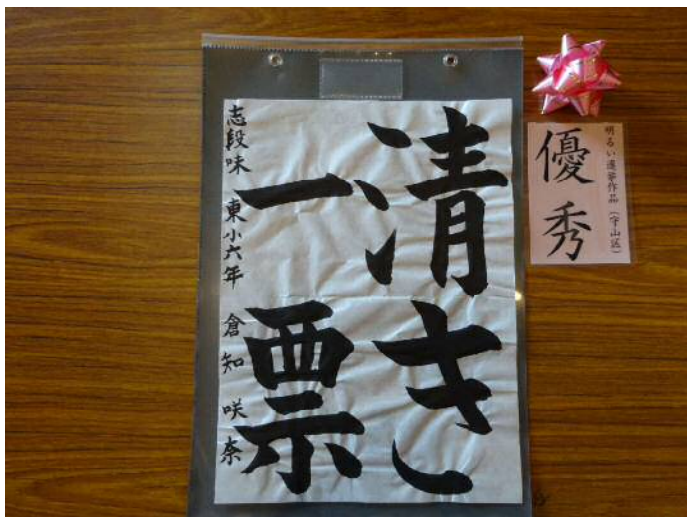 明るい選挙作品（守山区）
優秀
清き
一票
志段味東小六年 倉知咲奈